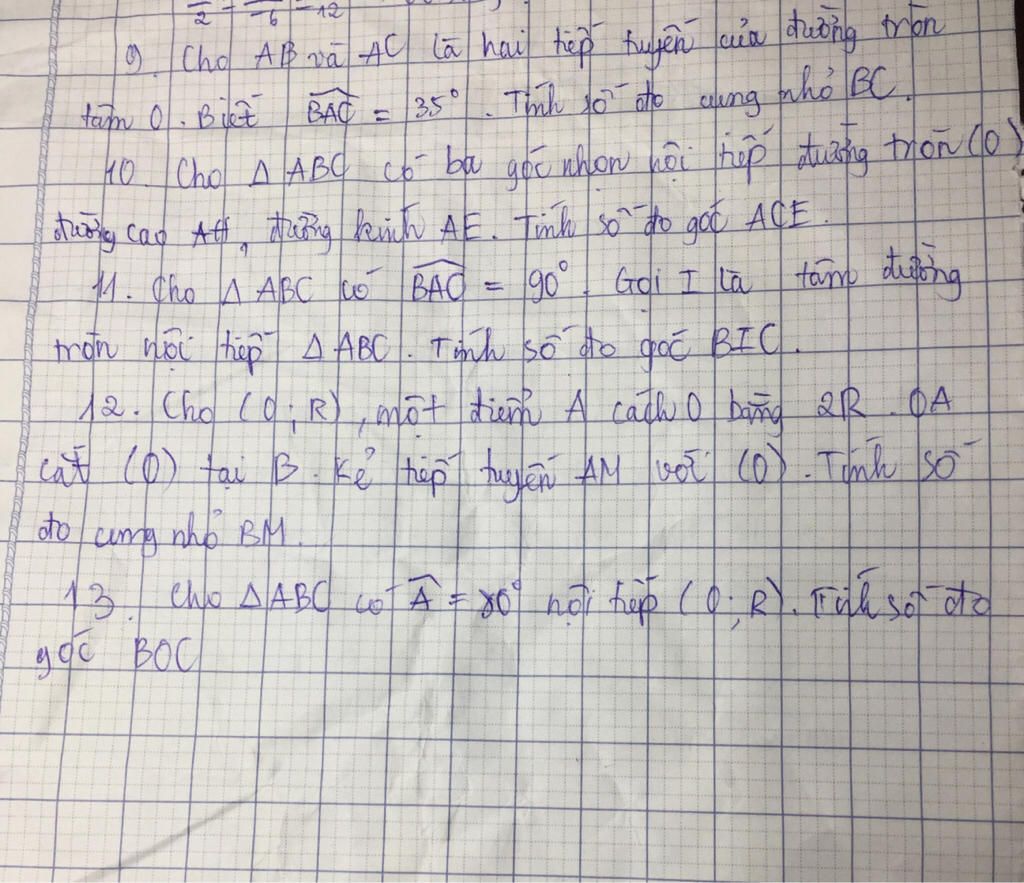 2 -6 -12
9. Cho AB và AC là hai tiếp tuyến của đường tròn
tâm O. Biết BAC = 35°. Tính số đo cung nhỏ BC.
10. Cho Δ ABC có ba góc nhọn nội tiếp đường tròn (O)
đường cao AH, đường kính AE. Tính số đo góc ACE.
11. Cho Δ ABC có BAC = 90°. Gọi I là tâm đường
tròn nội tiếp Δ ABC. Tính số đo góc BIC.
12. Cho (O; R), một điểm A cách O bằng 2R. OA
cắt (O) tại B. Kẻ tiếp tuyến AM với (O). Tính số
đo cung nhỏ BM.
13. Cho Δ ABC có A = nội tiếp (O; R). Tính số đo
góc BOC